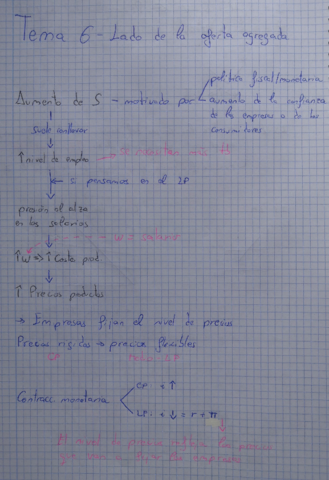 Tema 6 - Lado de la oferta agregada
política fiscal/monetaria
Aumento de S - motivado por aumento de la confianza
de las empresas o de los
consumidores.
suele conllevar
↑ nivel de empleo →
← si pensamos en el LP
presión al alza
en los salarios
w = salario
↑w => ↑ Coste prod.
↑ Precios productos
→ Empresas fijan el nivel de precios
Precios rígidos → precios flexibles
CP LP
monetaria
CP: ↑
LP: ↓ = r + π
Al nivel de precios